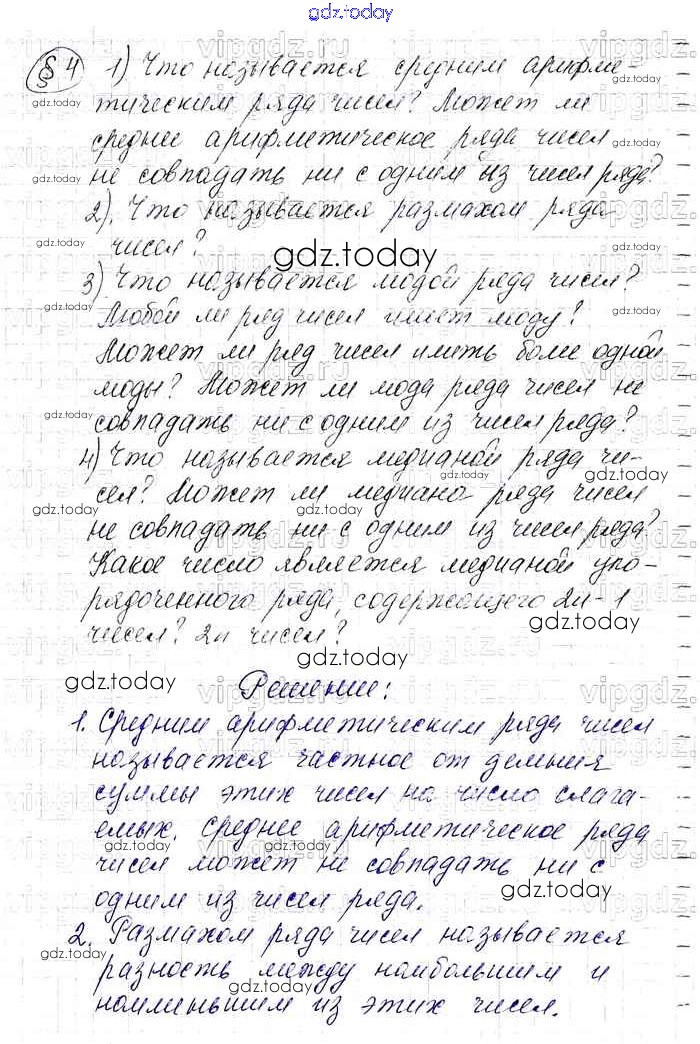 gdz.today
§ 4 1) Что называется средним арифме-
тическим ряда чисел? Может ли
среднее арифметическое ряда чисел
не совпадать ни с одним из чисел ряда?
2). Что называется размахом ряда
чисел?
3) Что называется модой ряда чисел?
Любой ли ряд чисел имеет моду?
Может ли ряд чисел иметь более одной
моды? Может ли мода ряда чисел не
совпадать ни с одним из чисел ряда?
4) Что называется медианой ряда чи-
сел? Может ли медиана ряда чисел
не совпадать ни с одним из чисел ряда?
Какое число является медианой упо-
рядоченного ряда, содержащего 2n-1
чисел? 2n чисел?
Решение:
1. Средним арифметическим ряда чисел
называется частное от деления
суммы этих чисел на число слага-
емых. Среднее арифметическое ряда
чисел может не совпадать ни с
одним из чисел ряда.
2. Размахом ряда чисел называется
разность между наибольшим и
наименьшим из этих чисел.